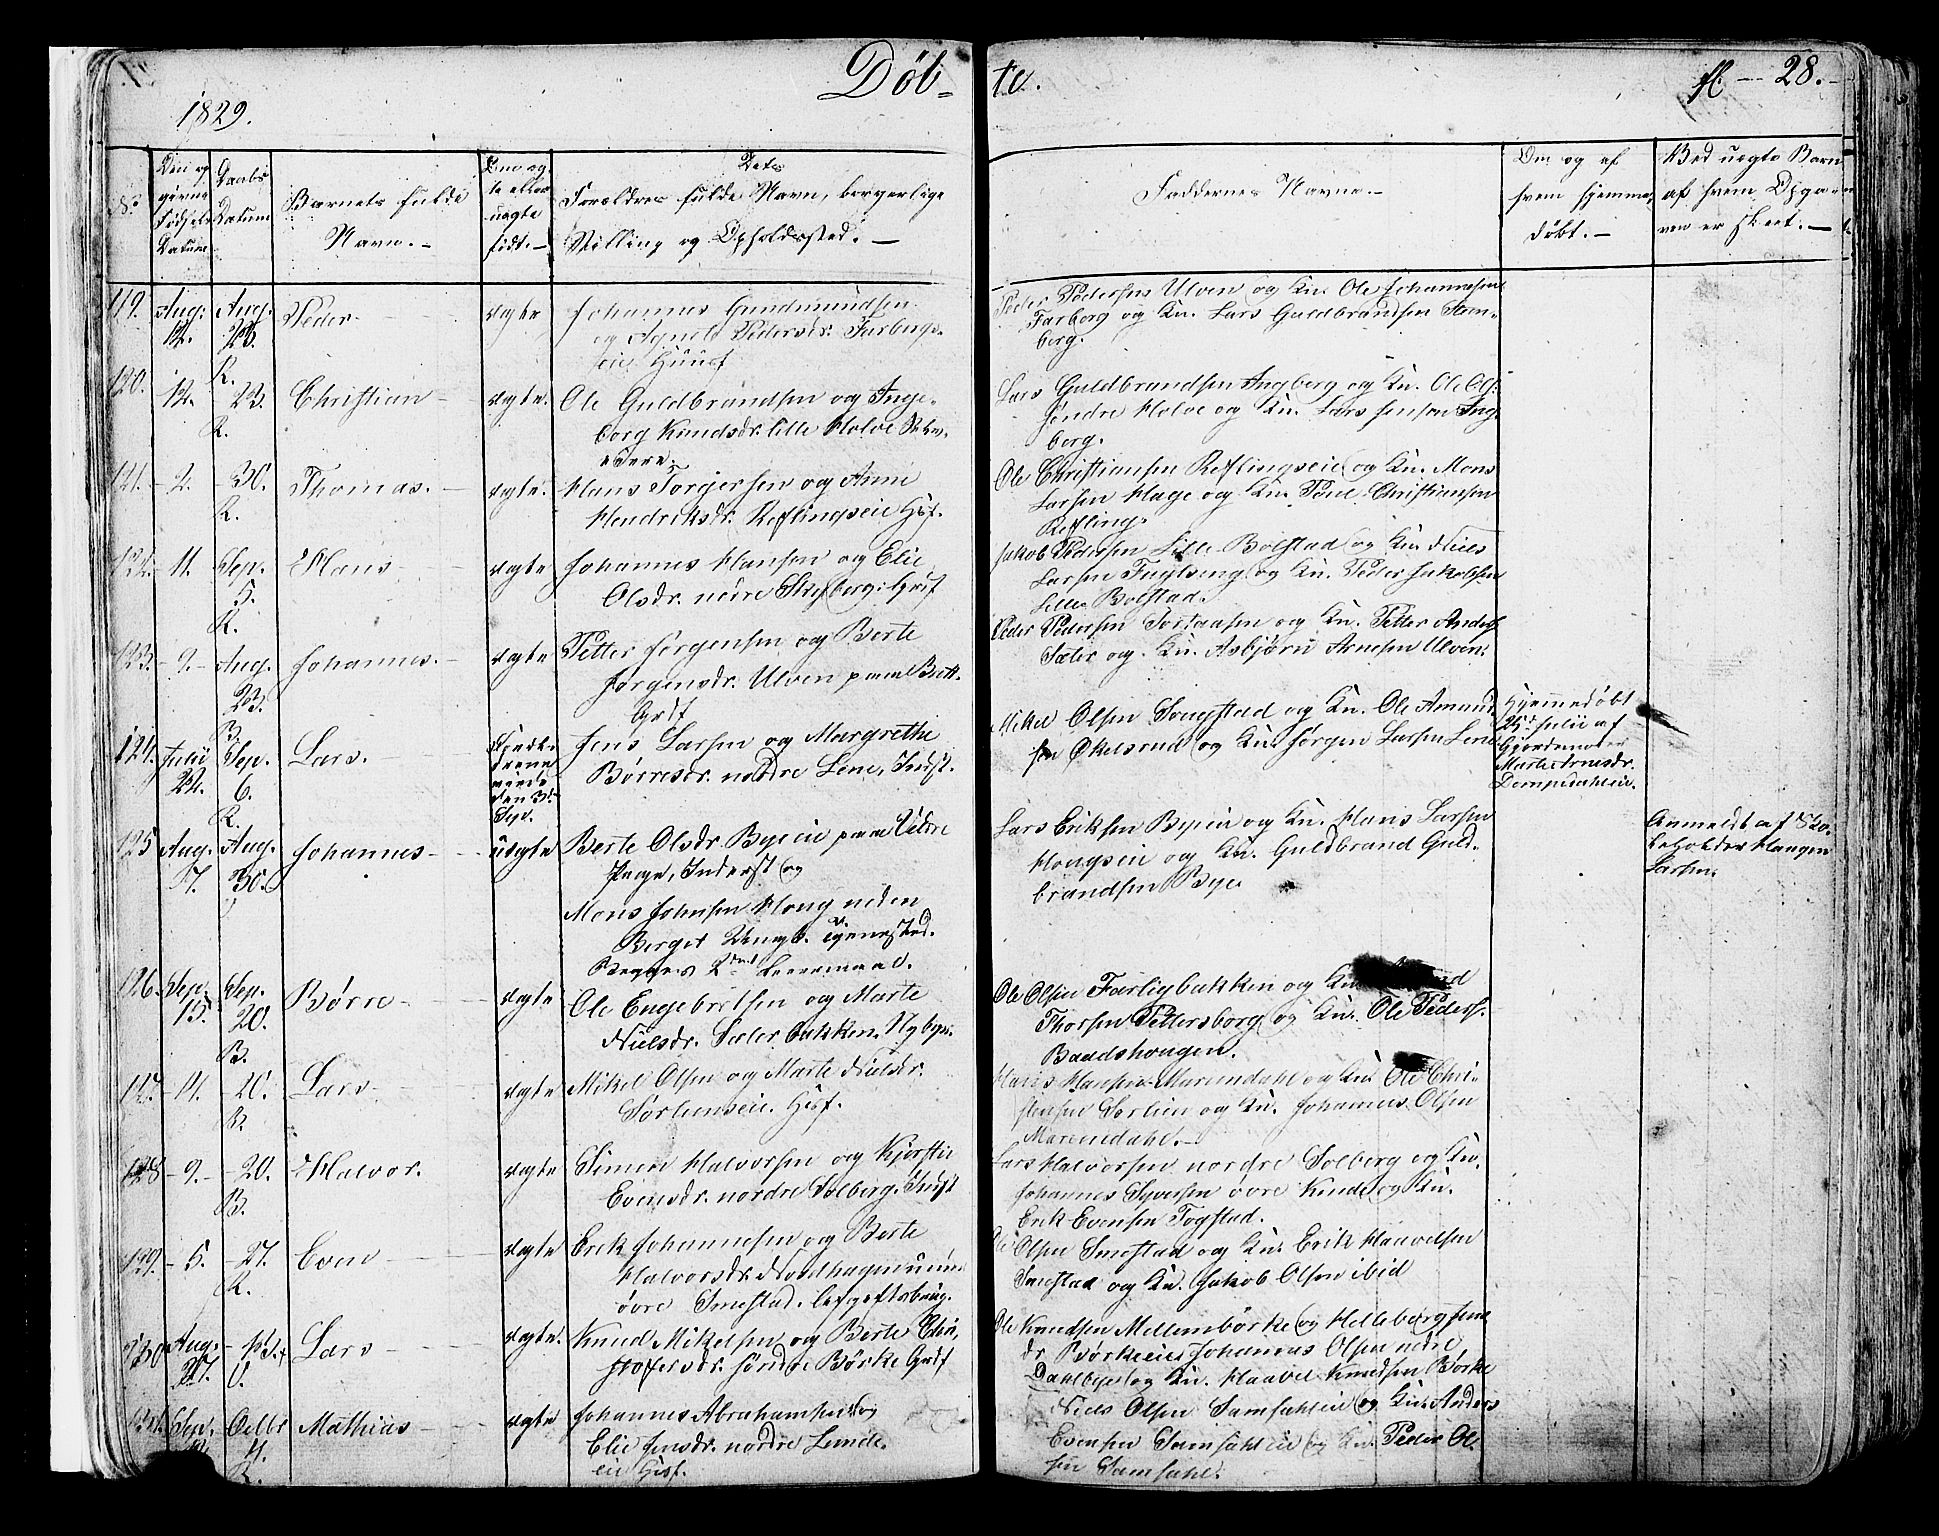 Døb-
te.
fl. 28.
1829.
No
Den op
givne
Fødsels
Datum
Daabs
Datum
Barnets fulde
Navn.-
Om æg-
te eller
uægte
født.-
Dets
Forældres fulde Navn, borgerlige
Stilling og Opholdssted.-
Faddernes Navne.-
Om og af
hvem hjemme
døbt.-
Ved uægte Børn
af hvem Opga-
ven er skeet.-
119.
Aug:
12.
Aug.
R.
Peder
ægte
Johannes Gundmundsen
og Agnete Pedersdr. Farbergs-
eie Huusf
Peder Pedersen Ulven og Kn. Ole Johannesen
Farberg og Kn. Lars Guldbrandsen Stem-
berg.
120.
12.
23.
R.
Christian
ægte.
Ole Guldbrandsen og Inge-
borg Knudsdr. lille Holve
Lars Guldbrandsen Ingberg og Kn. Ole Ols:
søndre Holve og Kn. Lars Jensen Ing
berg.
121.
2.
30.
R.
Thomas.
ægte.
Hans Torgersen og Anne
Hendriksdr. Reflingseie Hsf.
Ole Christiansen Reflingseie og Kn. Mons
Larsen Hage og Kn. Poul Christiansen
Refling.
122.
11.
Sep.
5.
R.
Hans
ægte
Johannes Hansen og Elie
Olsdr. nære Skyberg: Grdf
Jakob Pedersen Lille Bolstad og Kn. Niels
Larsen Fuglseng og Kn. Peder Jakobsen
Lille Bolstad.
123.
9.
Aug.
23.
B.
Johannes.
ægte
Petter Jørgensen og Berte
Jørgensdr. Ulven paa Bratt.
Grdf
Peder Pedersen og Kn. Petter Anders
Sæter og Kn. Asbjørn Arnesen Ulven.
124.
Julii
24.
Sep.
6.
R.
Lars.
den 3.
Sep.
Jens Larsen og Margrethe
Børresdr. nordre Lene, Indst.
Mikel Olsen Sougstad og Kn. Ole Amund
sen Økelsrud og Kn. Jørgen Larsen Lene
Hjemmedøbt
25de Julii af
Gjordemoder
Marte Arnesdr.
125
Aug.
17.
Aug.
30.
Johannes
uægte
Berte Olsdr. Byeeie paa Nedre
Page, Inderst og
Mons Johnsen Houg neden
Berget Ungk. Tjenestkd.
Begges 2det Leiermaal.
Lars Eriksen Byeeie og Kn. Hans Larsen
Hougseie og Kn. Guldbrand Guld-
brandsen Bye
Anmeldt af Sko-
leholder Haugen
Larsen.
126.
Sep.
15.
Sep.
20.
B.
Børre
ægte
Ole Engebretsen og Marte
Nielsdr. Sæler bakken. Nybyg.
Ole Olsen Farligbakken og Kn.
Thorsen Pettersborg og Kn. Ole Peders.
Baadshougen.
127.
11.
20.
B.
Lars
ægte
Mikel Olsen og Marte Nielsdr.
Sorlienseie. Hsf.
Hans Hansen Marendahl og Kn. Ole Chri-
stensen Sorlien og Kn. Johannes Olsen
Marendahl.-
128
9.
20.
B.
Halvor.
ægte
Simen Halvorsen og Kjerstie
Evensdr. nordre Solberg, Indst
Lars Halvorsen nordre Solberg og Kn.
Johannes Syversen øvre Kinde og Kn.
Erik Evensen Togstad.
129.
5.
27.
R.
Even
ægte
Erik Johannesen og Berte
Halvorsdr. Nordhagen under
øvre Smestad. lefgeftsbrug.
Ole Olsen Smestad og Kn. Erik Haavelsen
Smestad og Kn. Jakob Olsen ibid
130
Aug.
27.
Lars
ægte.
Knud Mikelsen og Berte Chri-
stofersdr. søndre Børke Grdf
Ole Knudsen Mellembørke og Helleborg Jens
dr. Børkeeie Johannes Olsen nedre
Dahlbye og Kn. Haavel Knudsen Børke
131.
Sep.
Octbr
4.
R.
Mathias
ægte
Johannes Abrahamsen og
Elie Jensdr. nordre Lunde-
eie Hsf.
Niels Olsen Samsahleie og Kn. Anders
Evensen Samsahleie og Kn. Peder Ol
sen Samsahl.